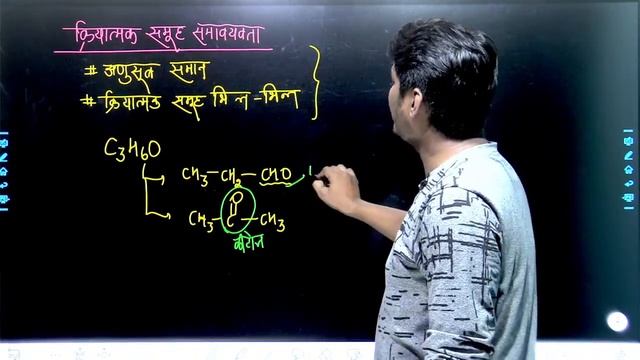 क्रियात्मक समूह समावयवता
# अणुसूत्र समान
# क्रियात्मक समूह भिन्न-भिन्न
C3H6O
CH3-CH2-CHO
O
CH3-C-CH3
कीटोन